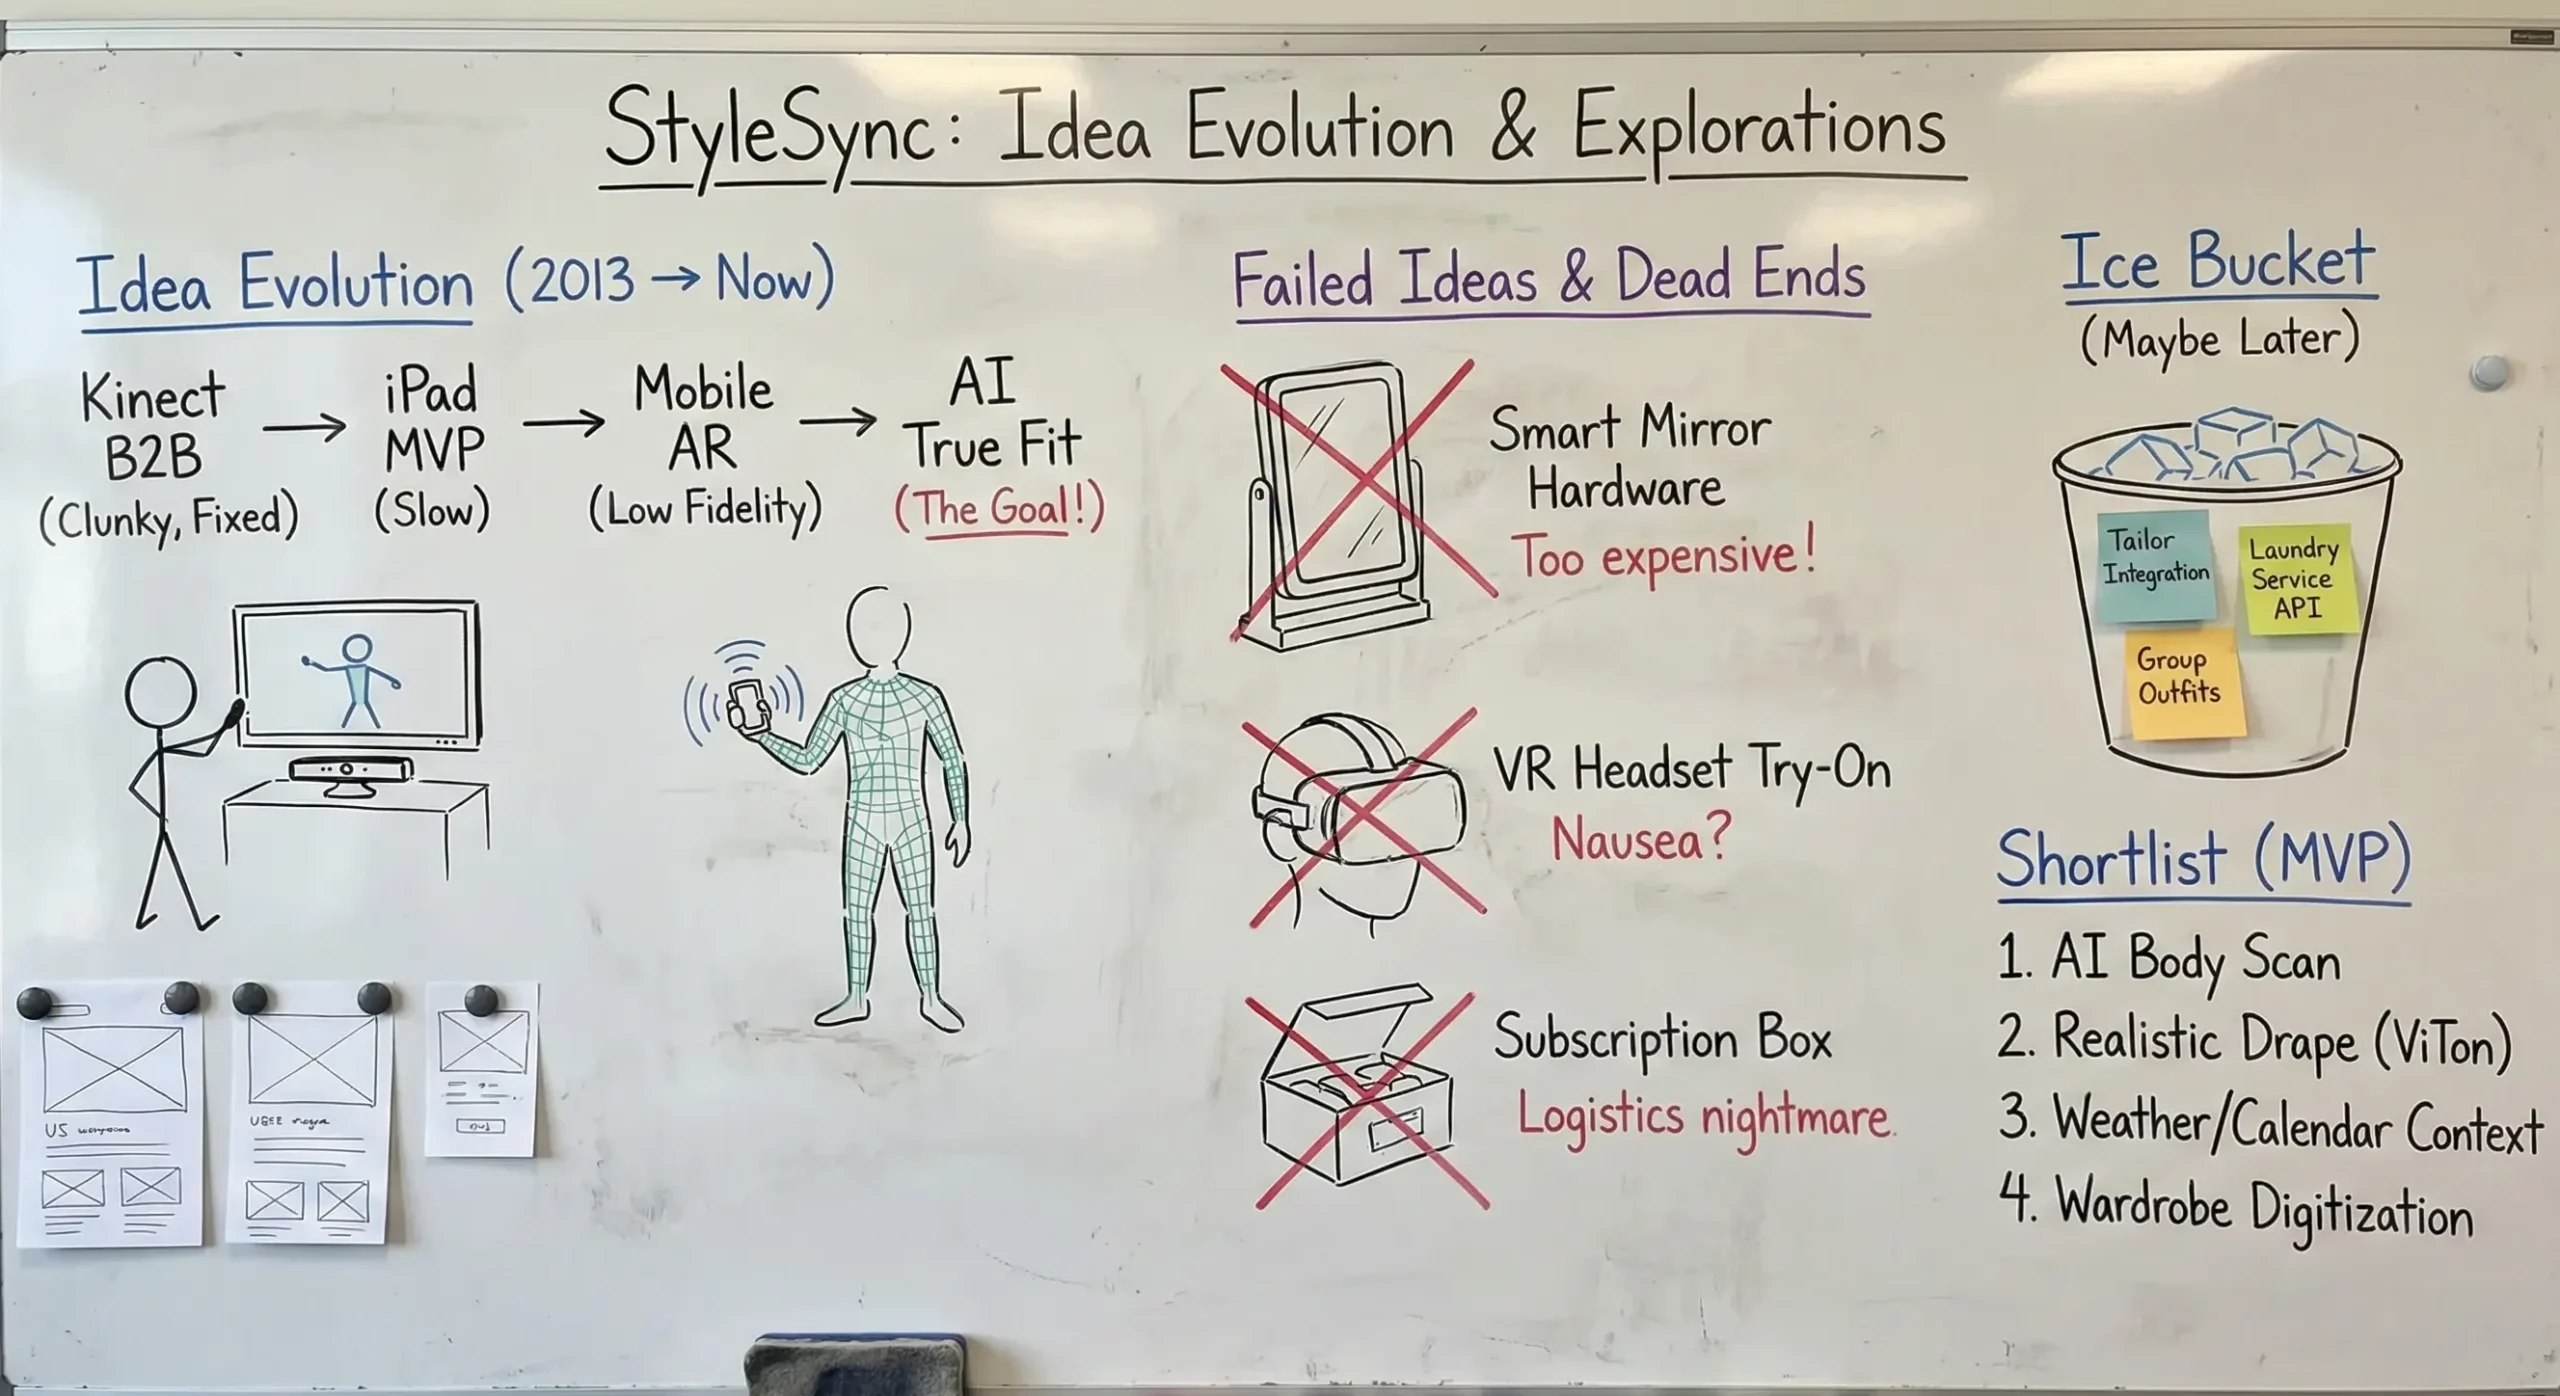 StyleSync: Idea Evolution & Explorations
Idea Evolution (2013 → Now)
Kinect
B2B
(Clunky, Fixed)
→
iPad
MVP
(Slow)
→
Mobile
AR
(Low Fidelity)
→
AI
True Fit
(The Goal!)
US
USEE
Failed Ideas & Dead Ends
Smart Mirror
Hardware
Too expensive!
VR Headset Try-On
Nausea?
Subscription Box
Logistics nightmare.
Ice Bucket
(Maybe Later)
Tailor
Integration
Laundry
Service
API
Group
Outfits
Shortlist (MVP)
1. AI Body Scan
2. Realistic Drape (ViTon)
3. Weather/Calendar Context
4. Wardrobe Digitization